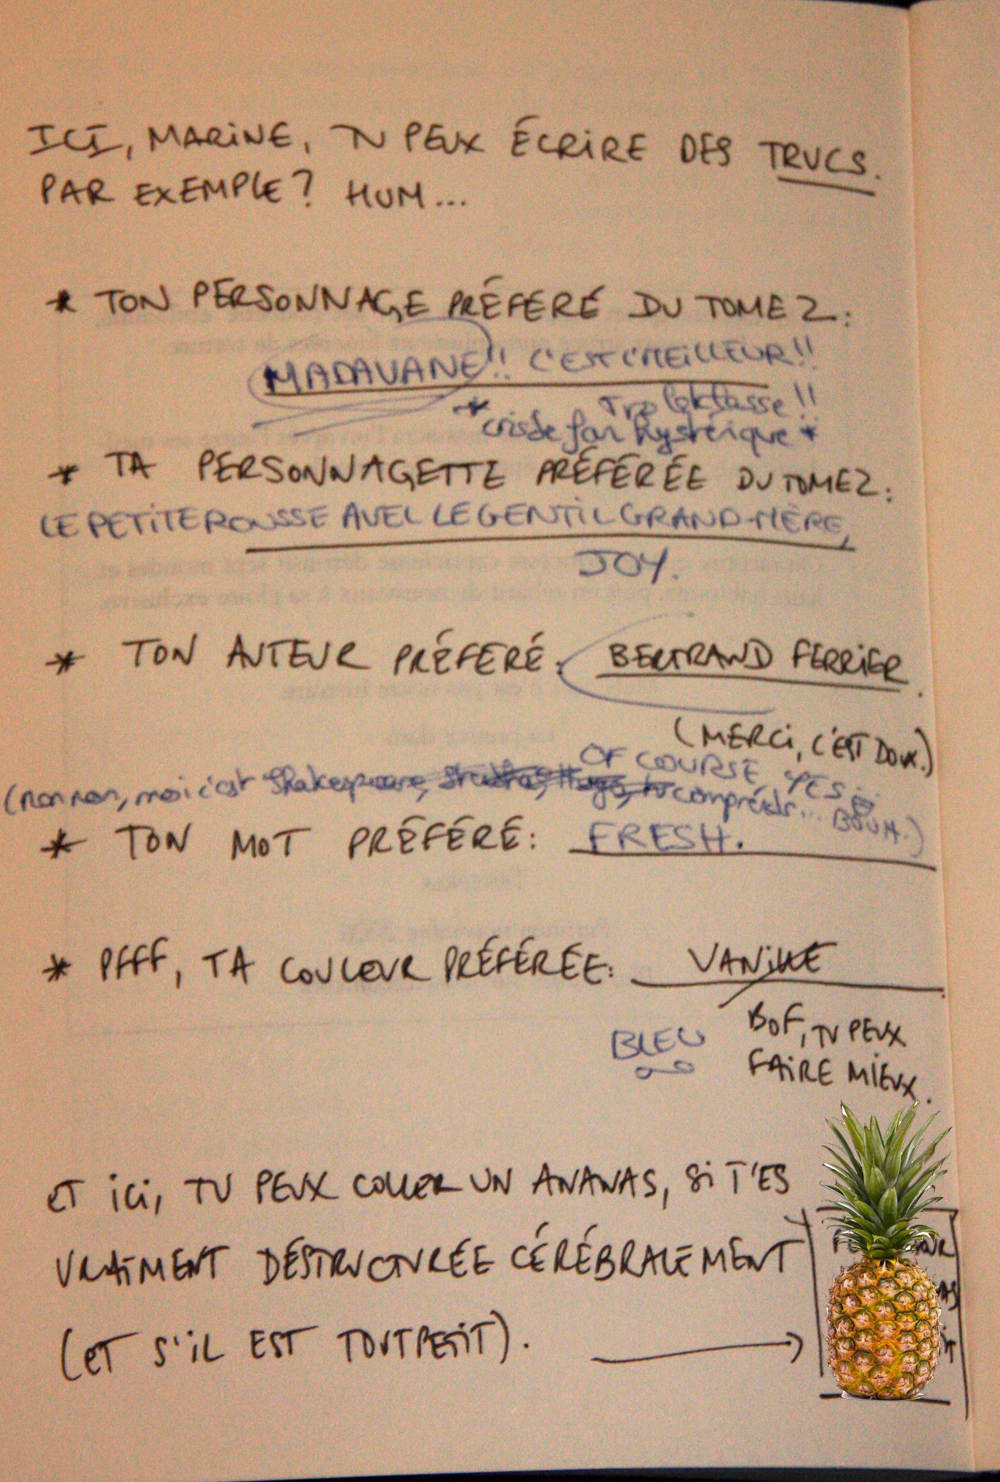 ICI, MARINE, TU PEUX ÉCRIRE DES TRUCS.
PAR EXEMPLE? HUM...
* TON PERSONNAGE PRÉFÉRÉ DU TOME 2:
MADAVANE!! C'EST L'MEILLEUR!!
Trop !!
*crise de fan hystérique*
* TA PERSONNAGETTE PRÉFÉRÉE DU TOME 2:
LE PETITE ROUSSE AVEC LE GENTIL GRAND-MÈRE,
JOY.
* TON AUTEUR PRÉFÉRÉ: BERTRAND FERRIER.
(MERCI, C'EST DOUX.)
OF COURSE, YES
(non non, moi c'est Shakespeare, compréds... BOUH.)
* TON MOT PRÉFÉRÉ: FRESH.
* PFFF, TA COULEUR PRÉFÉRÉE: VANILLE
BOF, TU PEUX
FAIRE MIEUX.
BLEU
ET ICI, TU PEUX COLLER UN ANANAS, SI T'ES
VRAIMENT DÉSTRUCTURÉE CÉRÉBRALEMENT
(ET S'IL EST TOUT PETIT).